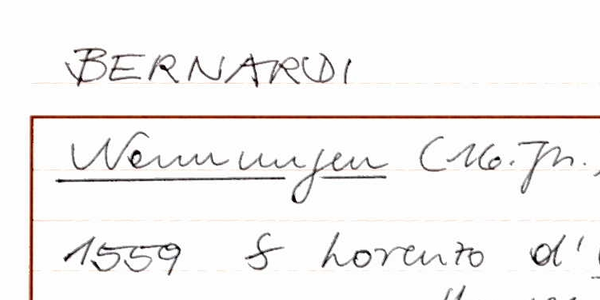 BERNARDI
Nennungen (16. Jh.,
1559 S Lorenzo d'